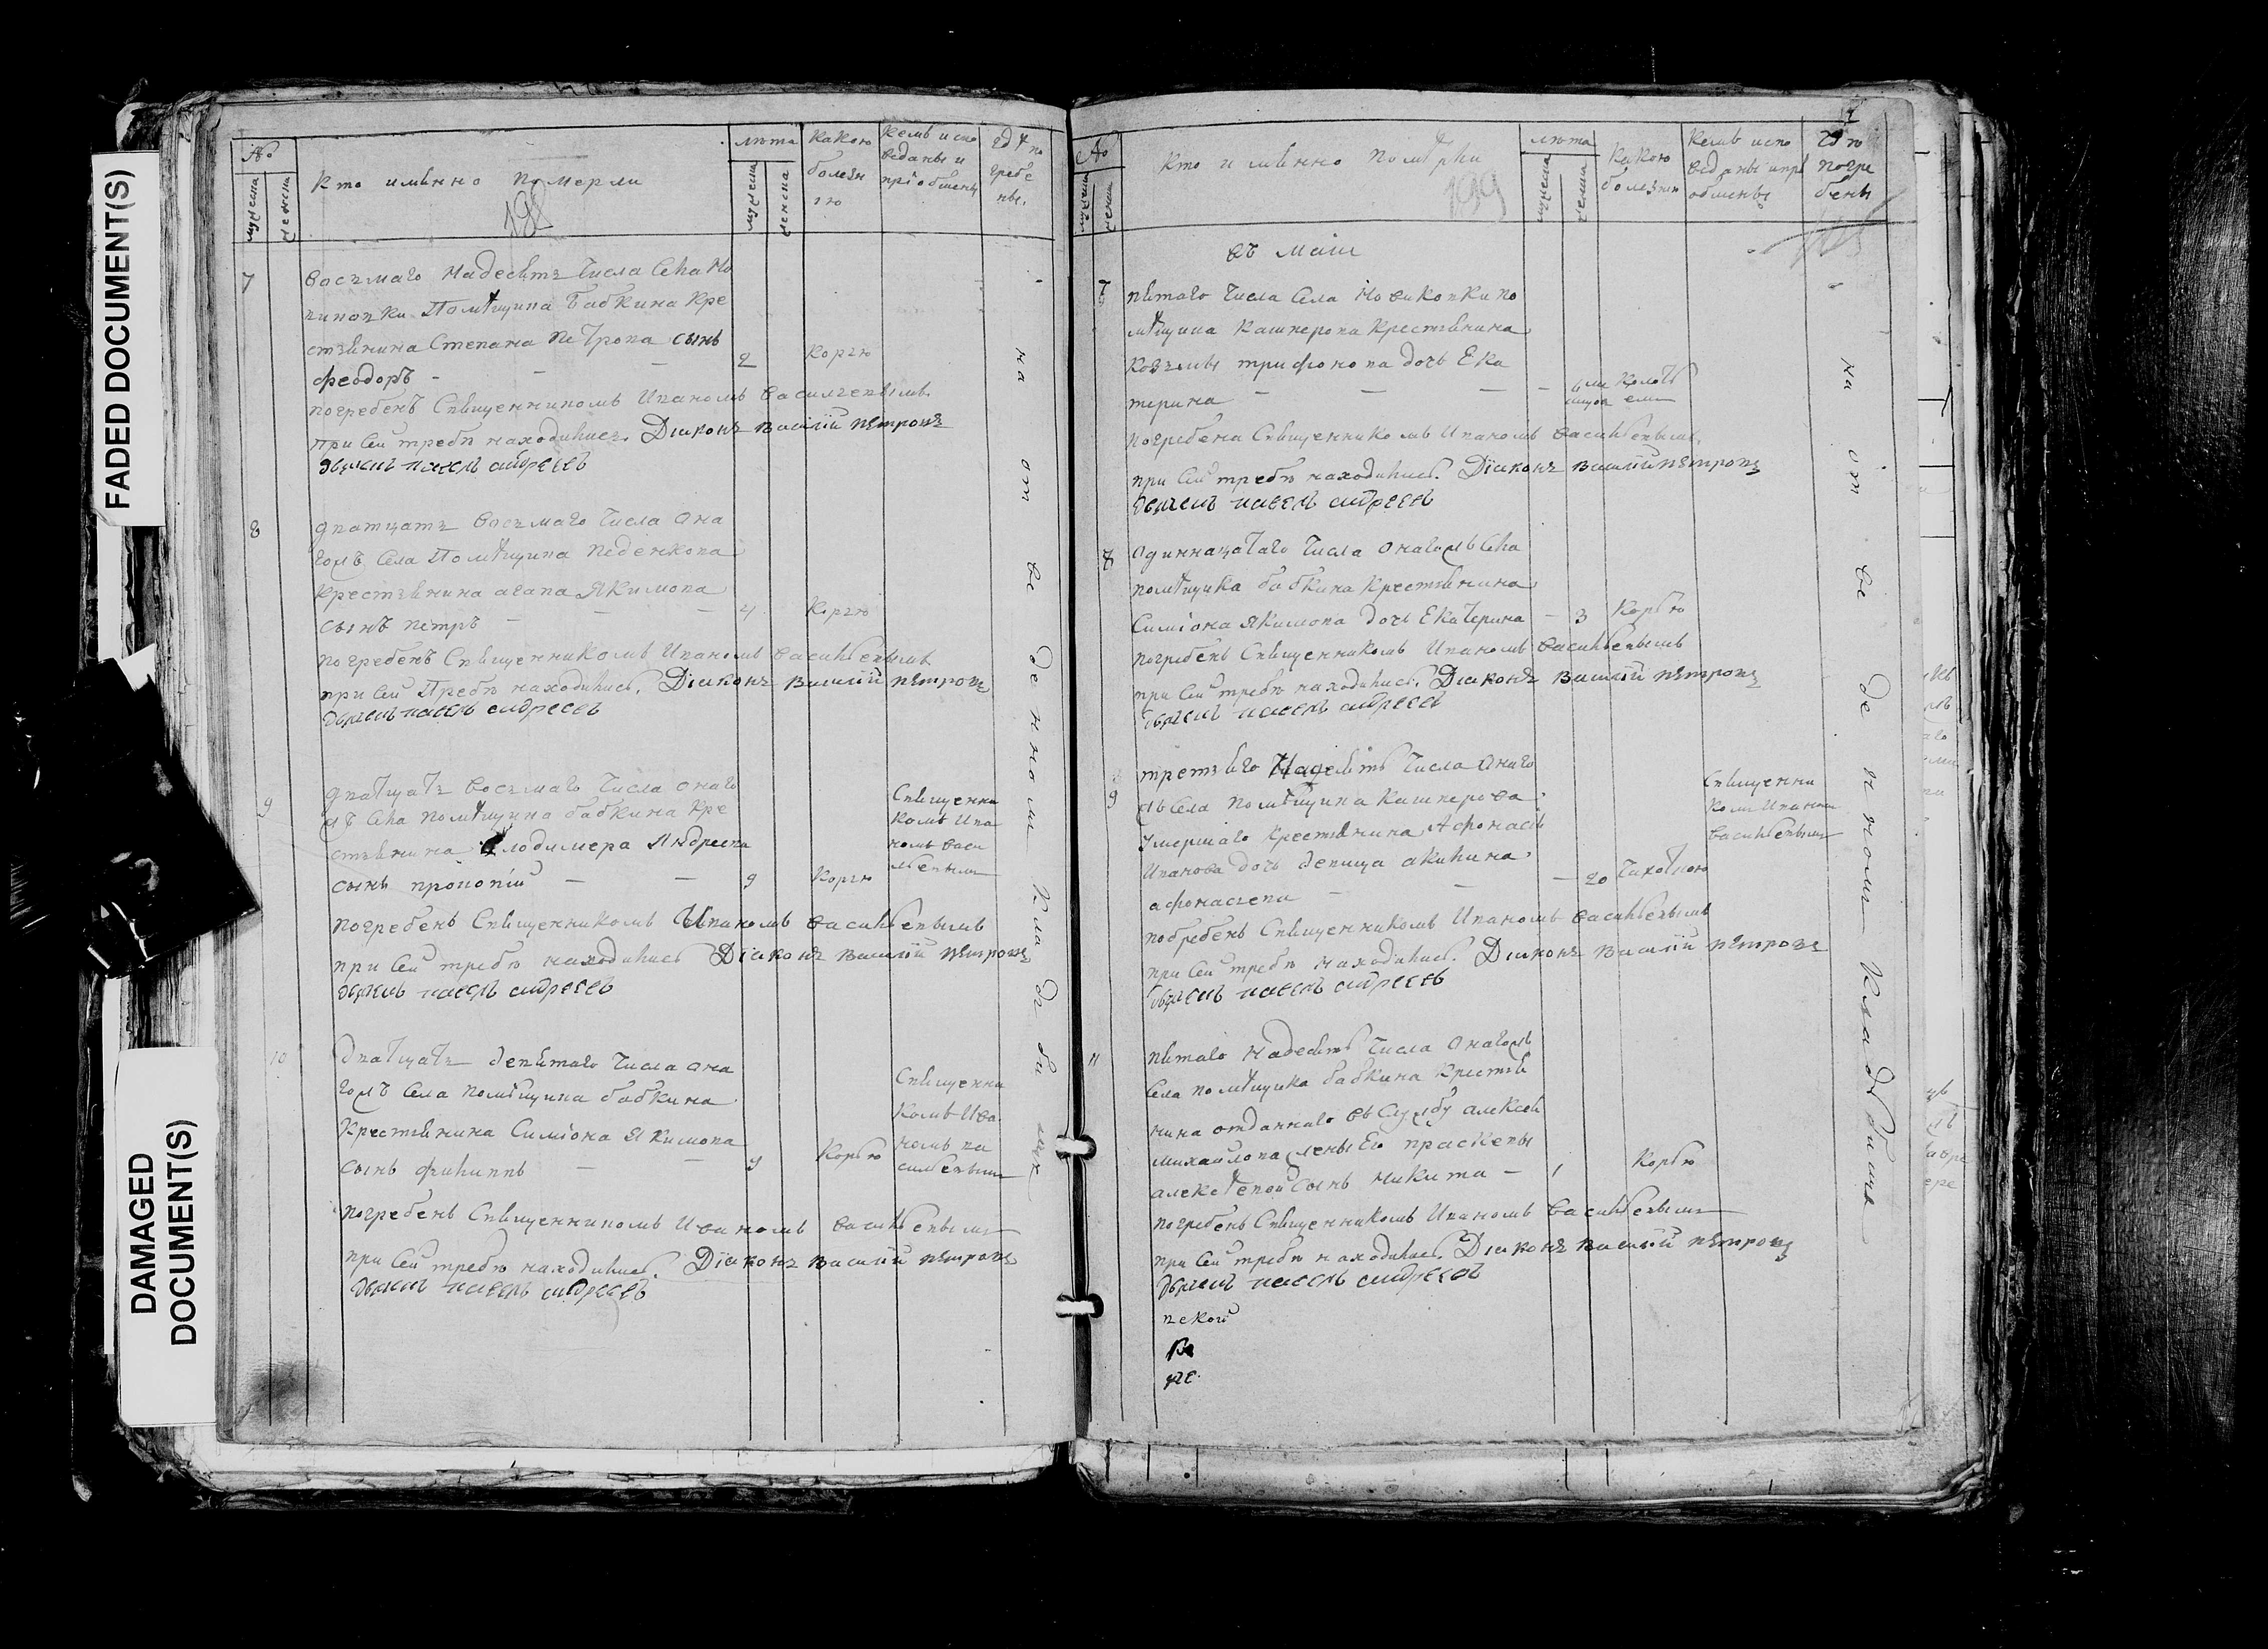 FADED DOCUMENT(S)
DAMAGED
DOCUMENT(S)
№
мужеска
женска
кто имянно померли
198
лѣта
мужеска
женска
какою
болезн
ію
кемъ испо
веданы и
пріобщены
гдѣ по
гребе
ны.
7
восъмаго надесять числа села Но
виковки помѣщика Бабкина кре
стьянина Степана Петрова сынъ
феодоръ - - - 2 корью
погребенъ Священникомъ Иваномъ Васильевымъ
при сей требѣ находились. Діаконъ Василій Петровъ
дьячекъ Павелъ Андреевъ
8
дватцать восъмаго числа она
гожъ села помѣщика
крестьянина агапа Якимова
сынъ петръ - - - 4 корью
погребенъ Священникомъ Иваномъ Васильевымъ
при сей требѣ находились. Діаконъ Василій Петровъ
дьячекъ Павелъ Андреевъ
9
дватцать восъмаго числа онаго
жъ села помѣщика бабкина кре
стьянина Володимера Андреева
сынъ - - 9 корью
Священни
комъ Ива
номъ Васи
льевымъ
погребенъ Священникомъ Иваномъ Васильевымъ
при сей требѣ находились Діаконъ Василій Петровъ
дьячекъ Павелъ Андреевъ
10
дватцать девятаго числа она
гожъ села помѣщика бабкина
крестьянина Симіона Якимова
сынъ филиппъ - - 9 корью
Священни
комъ Ива
номъ Ва
сильевымъ
погребенъ Священникомъ Иваномъ Васильевымъ
при сей требѣ находились. Діаконъ Василій Петровъ
дьячекъ Павелъ Андреевъ
на отведенномъ кладбищѣ
№
мужеска
женска
кто имянно померли
199
лѣта
мужеска
женска
какою
болезнію
кемъ испо
веданы и прі
общены
гдѣ
погре
бены
въ маіи
7
пятаго числа села Новиковки по
мѣщика Кашперова крестьянина
козьмы трифонова дочь Ека
терина - - - -
погребена Священникомъ Иваномъ Васильевымъ
при сей требѣ находились. Діаконъ Василій Петровъ
дьячекъ Павелъ Андреевъ
8
одиннацатаго числа онагожъ села
помѣщика бабкина крестьянина
Симіона Якимова дочь Екатерина - 3 корью
погребенъ Священникомъ Иваномъ Васильевымъ
при сей требѣ находились. Діаконъ Василій Петровъ
дьячекъ Павелъ Андреевъ
9
третьяго надесять числа онаго
жъ села помѣщика Кашперова
умершаго крестьянина Афонасья
Иванова дочь девица акилина
афонасьева - - - 20 чихоткою
Священни
комъ Иваномъ
Васильевымъ
погребенъ Священникомъ Иваномъ Васильевымъ
при сей требѣ находились. Діаконъ Василій Петровъ
дьячекъ Павелъ Андреевъ
11
пятаго надесять числа онагожъ
села помѣщика бабкина крестья
нина отданнаго въ службу алексея
михайлова жены его прасковьи
алексѣевой сынъ никита - 1 корью
погребенъ Священникомъ Иваномъ Васильевымъ
при сей требѣ находились. Діаконъ Василій Петровъ
дьячекъ Павелъ Андреевъ
на отведенномъ кладбищѣ